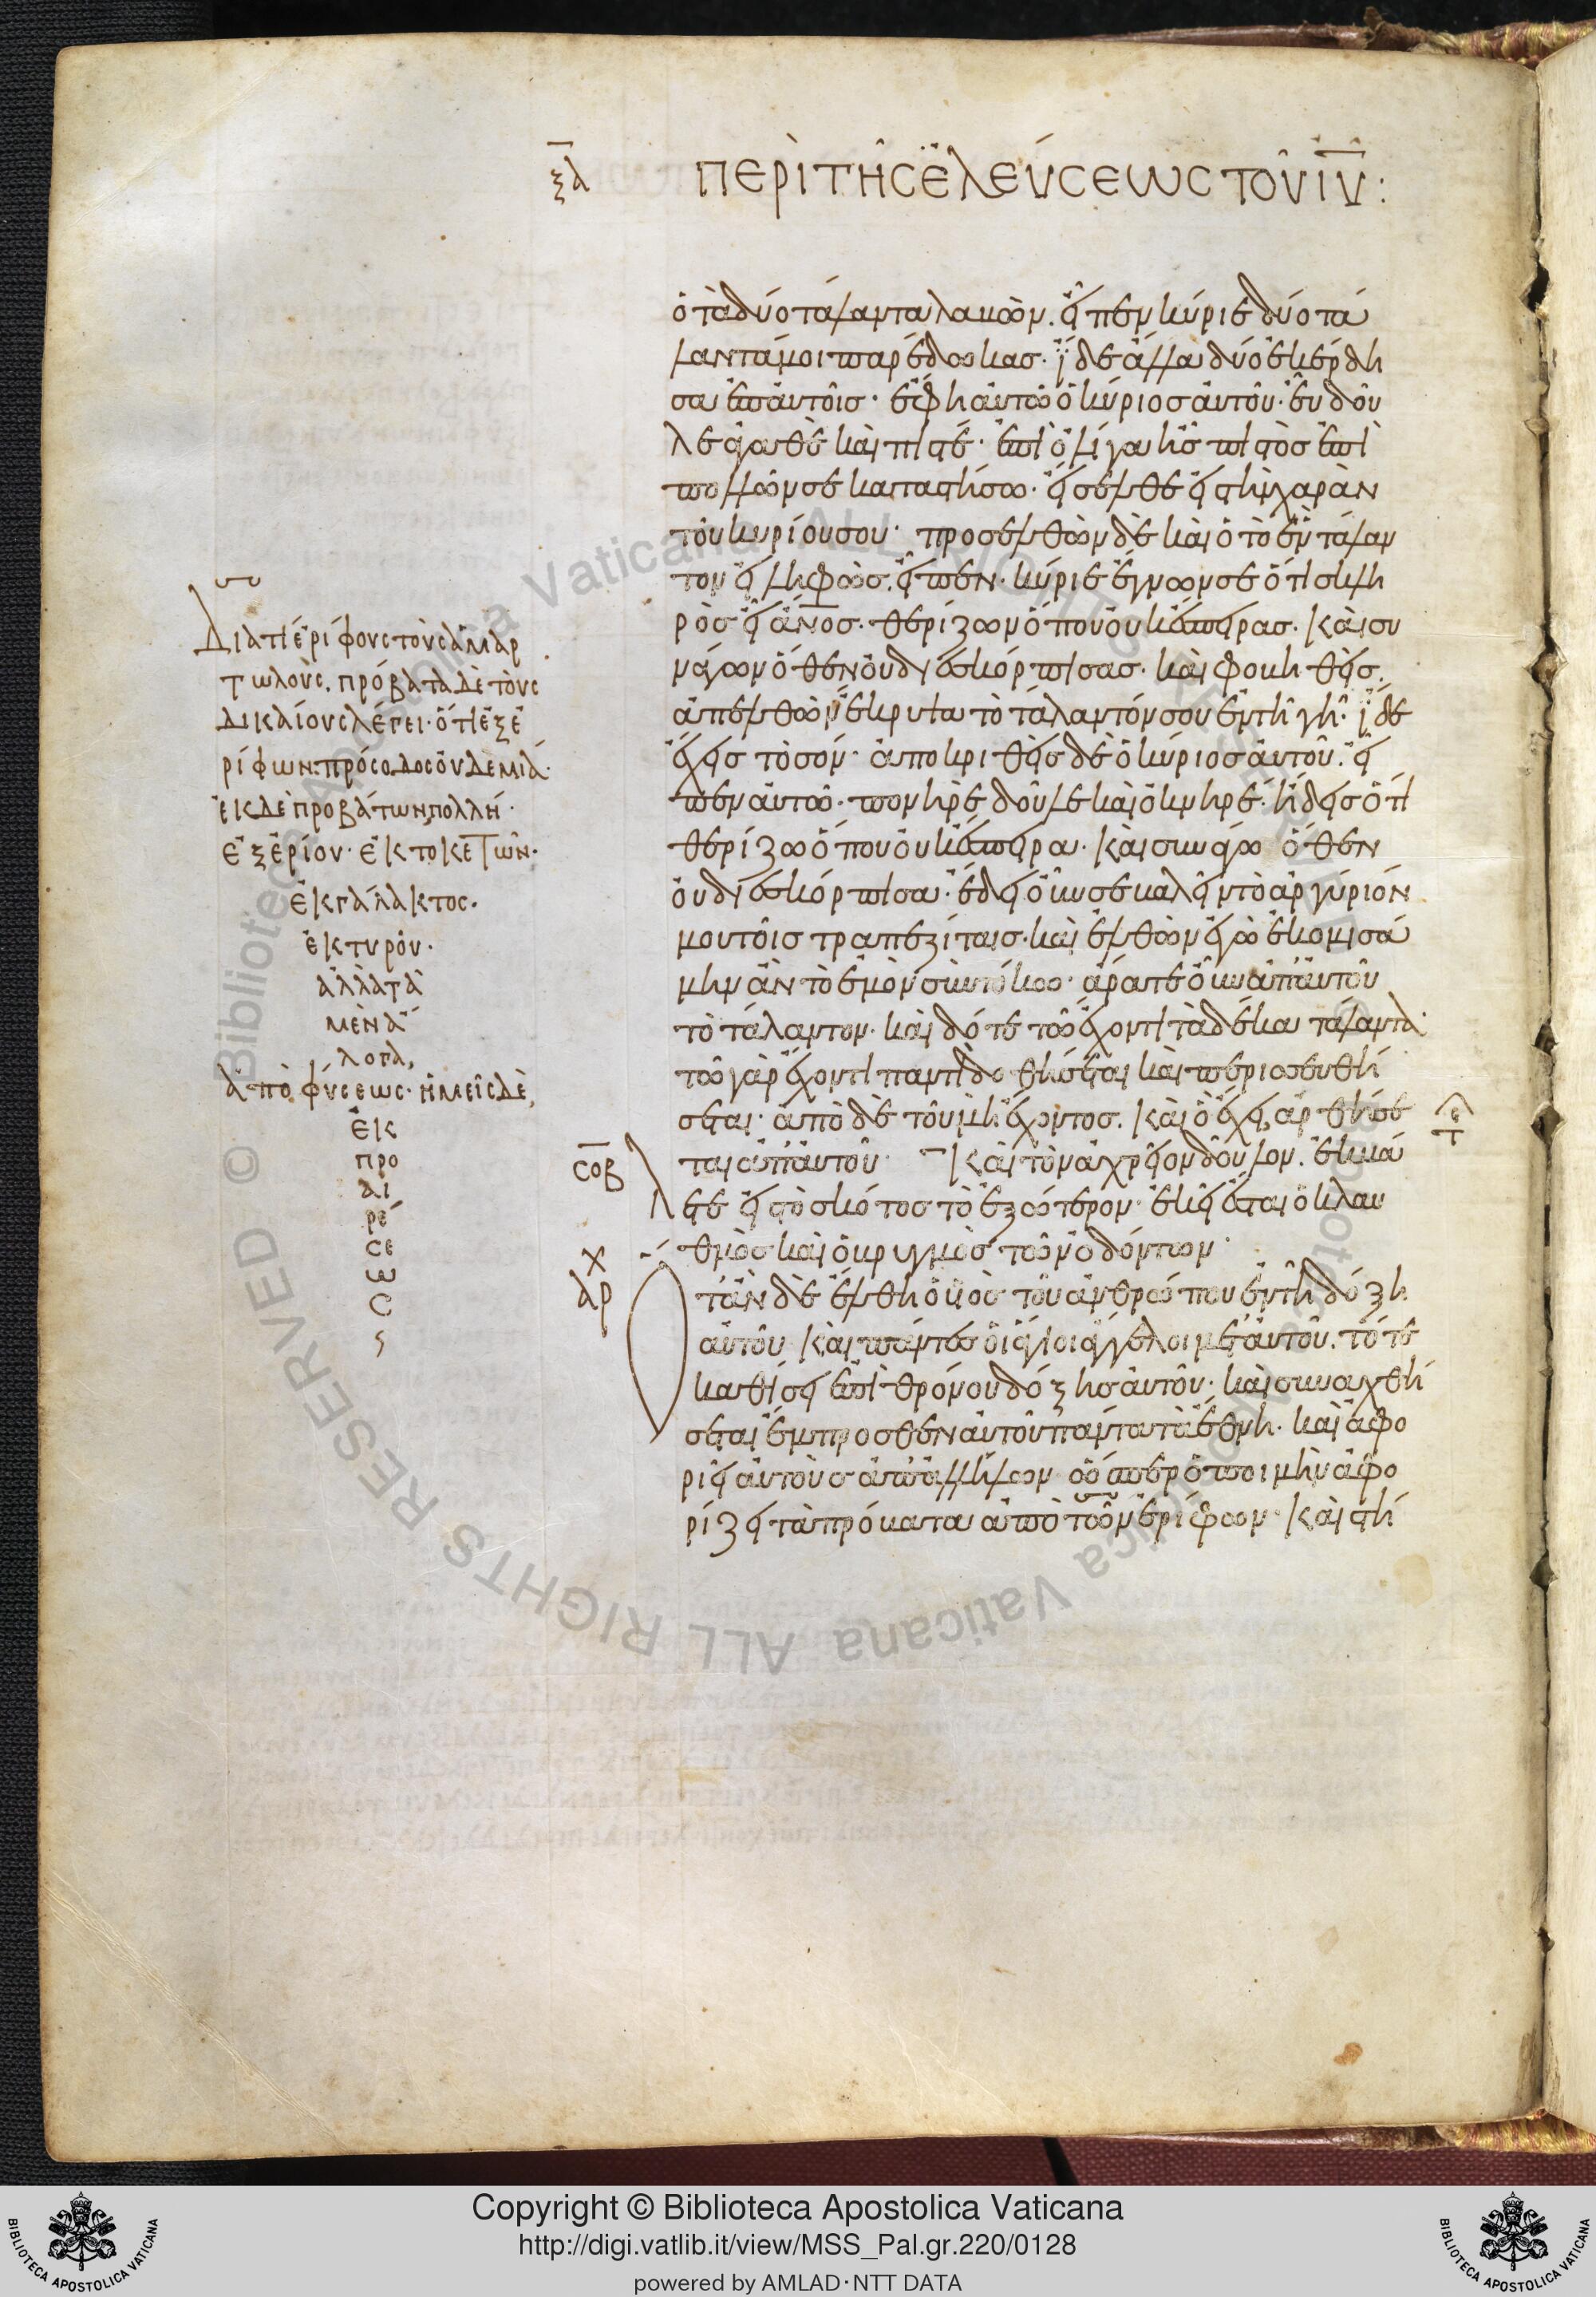 ξα ΠΕΡῚ ΤΗ͂Σ ἘΛΕΎΣΕΩΣ ΤΟΥ͂ ΙΥ͂:
ὁ τὰ δύο τάλαντα λαβὼν. εἶπεν κύριε δύο τά
λαντά μοι παρέδωκας· ἴδε ἄλλα δύο ἐκέρδη
σα ἐπ' αὐτοῖς· ἔφη αὐτῷ ὁ κύριος αὐτοῦ· εὖ δοῦ
λε ἀγαθὲ καὶ πιστέ· ἐπὶ ὀλίγα ἦς πιστὸς ἐπὶ
πολλῶν σε καταστήσω· εἴσελθε εἰς τὴν χαρὰν
τοῦ κυρίου σου· προσελθὼν δὲ καὶ ὁ τὸ ἓν τάλαν
τον εἰληφὼς. εἶπεν· κύριε ἔγνων σε ὅτι σκλη
ρὸς εἶ ἄνος· θερίζων ὅπου οὐκ ἔσπειρας· καὶ συ
νάγων ὅθεν οὐ διεσκόρπισας· καὶ φοβηθεὶς
ἀπελθὼν ἔκρυψα τὸ τάλαντόν σου ἐν τῇ γῇ· ἴδε
ἔχεις τὸ σόν· ἀποκριθεὶς δὲ ὁ κύριος αὐτοῦ. εἶ
πεν αὐτῷ· πονηρὲ δοῦλε καὶ ὀκνηρέ· ᾔδεις ὅτι
θερίζω ὅπου οὐκ ἔσπειρα· καὶ συνάγω ὅθεν
οὐ διεσκόρπισα· ἔδει οὖν σε βαλεῖν τὸ ἀργύριόν
μου τοῖς τραπεζίταις· καὶ ἐλθὼν ἐγὼ ἐκομισά
μην ἂν τὸ ἐμὸν σὺν τόκω· ἄρατε οὖν ἀπ' αὐτοῦ
τὸ τάλαντον· καὶ δότε τῷ ἔχοντι τὰ δέκα τάλαντα·
τῷ γὰρ ἔχοντι παντὶ δοθήσεται καὶ περισσευθή
σεται· ἀπὸ δὲ τοῦ μὴ ἔχοντος. καὶ ὃ ἔχει, ἀρθήσε
ται ἀπ' αὐτοῦ· καὶ τὸν ἀχρεῖον δοῦλον. ἐκβά
λετε εἰς τὸ σκότος τὸ ἐξώτερον· ἐκεῖ ἔσται ὁ κλαυ
θμὸς καὶ ὁ βρυγμὸς τῶν ὀδόντων·
Ὅταν δὲ ἔλθη ὁ υἱὸς τοῦ ἀνθρώπου ἐν τῇ δόξη
αὐτοῦ καὶ πάντες οἱ ἅγιοι ἄγγελοι μετ' αὐτοῦ. τότε
καθίσει ἐπὶ θρόνου δόξης αὐτοῦ· καὶ συναχθή
σεται ἔμπροσθεν αὐτοῦ πάντα τὰ ἔθνη· καὶ ἀφο
ριεῖ αὐτοὺς ἀπ' ἀλλήλων ὥσπερ ὁ ποιμὴν ἀφο
ρίζει τὰ πρόβατα ἀπὸ τῶν ἐρίφων· καὶ στή
Διατί ἐρίφους τοὺς ἁμαρ
τωλοὺς. πρόβατα δὲ τοὺς
δικαίους λέγει· ὅτι ἐξ ἐ
ρίφων πρόσοδος οὐδεμία·
ἐκ δὲ προβάτων πολλή·
ἐξ ἐρίου· ἐκ τοκετῶν·
ἐκ γάλακτος·
ἐκ τυροῦ·
ἀλλὰ τὰ
μὲν ἄ
λογα,
ἀπὸ φύσεως· ἡμεῖς δὲ,
ἐκ
προ
αι
ρέ
σε
ω
ς
σοβ
χ
αρ
τε
Copyright © Biblioteca Apostolica Vaticana
http://digi.vatlib.it/view/MSS_Pal.gr.220/0128
powered by AMLAD·NTT DATA
BIBLIOTECA APOSTOLICA VATICANA
BIBLIOTECA APOSTOLICA VATICANA
© Biblioteca Apostolica Vaticana ALL RIGHTS RESERVED